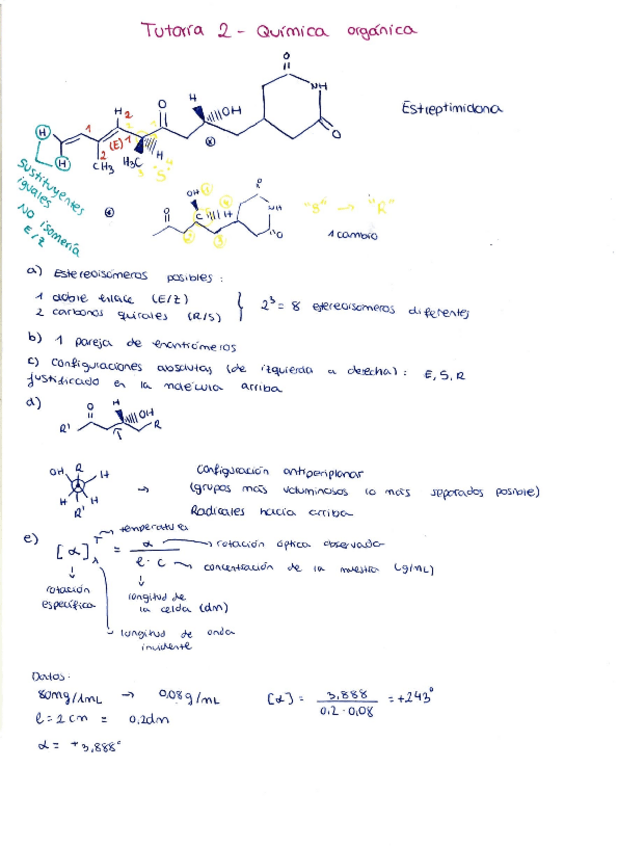 Tutoría 2 - Química orgánica
O
NH
O
Estreptimidona
H
OH
O
H 2
1
(E) 1
2
CH3
H3C
H
"S"
H
H
Sustituyentes
iguales
NO isomería
E/Z
OH
O
C
H
NH
O
"S" → "R"
1 cambio
a) Estereoisómeros posibles:
1 doble enlace (E/Z)
2 carbonos quirales (R/S)
2³ = 8 estereoisomeros diferentes
b) 1 pareja de enantiómeros
c) Configuraciones absolutas (de izquierda a derecha): E, S, R
Justificado en la molécula arriba
d)
O
H
OH
R'
R
OH
R
H
H
H
R'
→
Configuración antiperiplanar
(grupos más voluminosos lo más separados posible)
Radicales hacia arriba
e) [α]
T
λ
= α / l · c
temperatura
rotación óptica observada
concentración de la muestra (g/mL)
rotación
específica
longitud de
la celda (dm)
longitud de onda
incidente
Datos:
80mg/1mL → 0,08g/mL
[α] = 3,888 / 0,2 · 0,08 = +243°
l = 2 cm = 0,2dm
α = +3,888°